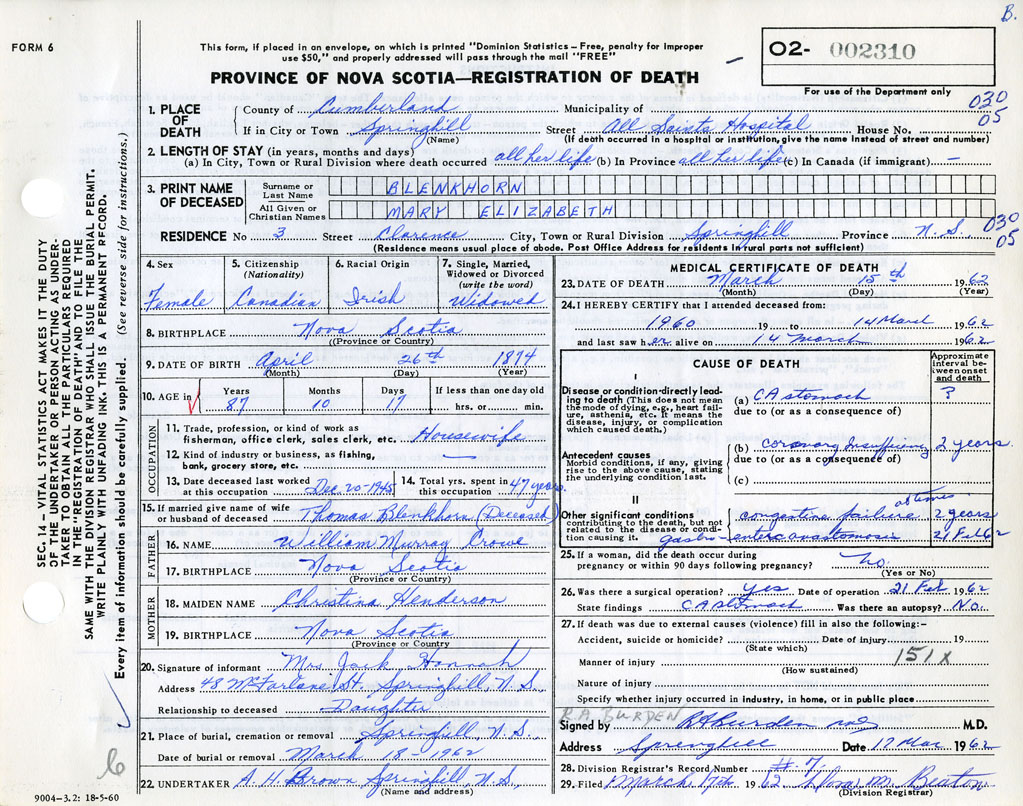 B.
FORM 6
This form, if placed in an envelope, on which is printed "Dominion Statistics – Free, penalty for improper
use $50," and properly addressed will pass through the mail "FREE"
O2- 002310
For use of the Department only
PROVINCE OF NOVA SCOTIA—REGISTRATION OF DEATH
030
05
1. PLACE OF DEATH
County of Cumberland Municipality of
If in City or Town Springhill Street All Saints Hospital House No.
(Name) (If death occurred in a hospital or institution, give the name instead of street and number)
2. LENGTH OF STAY (in years, months and days)
(a) In City, Town or Rural Division where death occurred all her life (b) In Province all her life (c) In Canada (if immigrant) —
3. PRINT NAME OF DECEASED
Surname or Last Name BLENKHORN
All Given or Christian Names MARY ELIZABETH
RESIDENCE No 3 Street Clarence City, Town or Rural Division Springhill Province N.S.
030
05
(Residence means usual place of abode. Post Office Address for residents in rural parts not sufficient)
4. Sex 5. Citizenship (Nationality) 6. Racial Origin 7. Single, Married, Widowed or Divorced (write the word)
Female Canadian Irish Widowed
8. BIRTHPLACE Nova Scotia
(Province or Country)
9. DATE OF BIRTH April 26th 1874
(Month) (Day) (Year)
10. AGE in Years Months Days If less than one day old
87 10 17 hrs. or min.
OCCUPATION
11. Trade, profession, or kind of work as
fisherman, office clerk, sales clerk, etc. Housewife
12. Kind of industry or business, as fishing,
bank, grocery store, etc. —
13. Date deceased last worked at this occupation Dec. 20-1945 14. Total yrs. spent in this occupation 47 years
15. If married give name of wife
or husband of deceased Thomas Blenkhorn (Deceased)
FATHER
16. NAME William Murray Crowe
17. BIRTHPLACE Nova Scotia
(Province or Country)
MOTHER
18. MAIDEN NAME Christina Henderson
19. BIRTHPLACE Nova Scotia
(Province or Country)
20. Signature of informant Mrs. Jack Hannah
Address 48 McFarlane St. Springhill, N.S.
Relationship to deceased Daughter
21. Place of burial, cremation or removal Springhill N.S.
Date of burial or removal March 18-1962
22. UNDERTAKER A. H. Brown Springhill, N.S.
(Name and address)
MEDICAL CERTIFICATE OF DEATH
23. DATE OF DEATH March 15th 1962
(Month) (Day) (Year)
24. I HEREBY CERTIFY that I attended deceased from:
1960 19 to 14 March 1962
and last saw her alive on 14 March 1962
CAUSE OF DEATH
Approximate interval between onset and death
I
Disease or condition directly leading to death (This does not mean the mode of dying, e.g., heart failure, asthenia, etc. It means the disease, injury, or complication which caused death.)
(a) CA stomach ?
due to (or as a consequence of)
Antecedent causes
Morbid conditions, if any, giving rise to the above cause, stating the underlying condition last.
(b) coronary insufficiency 2 years
due to (or as a consequence of)
(c)
II
Other significant conditions
contributing to the death, but not related to the disease or condition causing it.
congestive failure at times 2 years
gastro-enteroanastomosis 21 Feb 62
25. If a woman, did the death occur during
pregnancy or within 90 days following pregnancy? No.
(Yes or No)
26. Was there a surgical operation? yes Date of operation 21 Feb 1962
State findings CA stomach Was there an autopsy? No.
27. If death was due to external causes (violence) fill in also the following:–
Accident, suicide or homicide? Date of injury 19
(State which)
151X
Manner of injury
(How sustained)
Nature of injury
Specify whether injury occurred in industry, in home, or in public place
R A BURDEN
Signed by RA Burden MD M.D.
Address Springhill Date 17 Mar 1962
28. Division Registrar's Record Number # 7.
29. Filed March 17th 1962 M. Beaton
(Division Registrar)
SEC. 14 – VITAL STATISTICS ACT MAKES IT THE DUTY
OF THE UNDERTAKER OR PERSON ACTING AS UNDER-
TAKER TO OBTAIN ALL THE PARTICULARS REQUIRED
IN THE "REGISTRATION OF DEATH" AND TO FILE THE
SAME WITH THE DIVISION REGISTRAR WHO SHALL ISSUE THE BURIAL PERMIT.
WRITE PLAINLY WITH UNFADING INK. THIS IS A PERMANENT RECORD.
Every item of information should be carefully supplied. (See reverse side for instructions.)
6
9004–3.2: 18-5-60